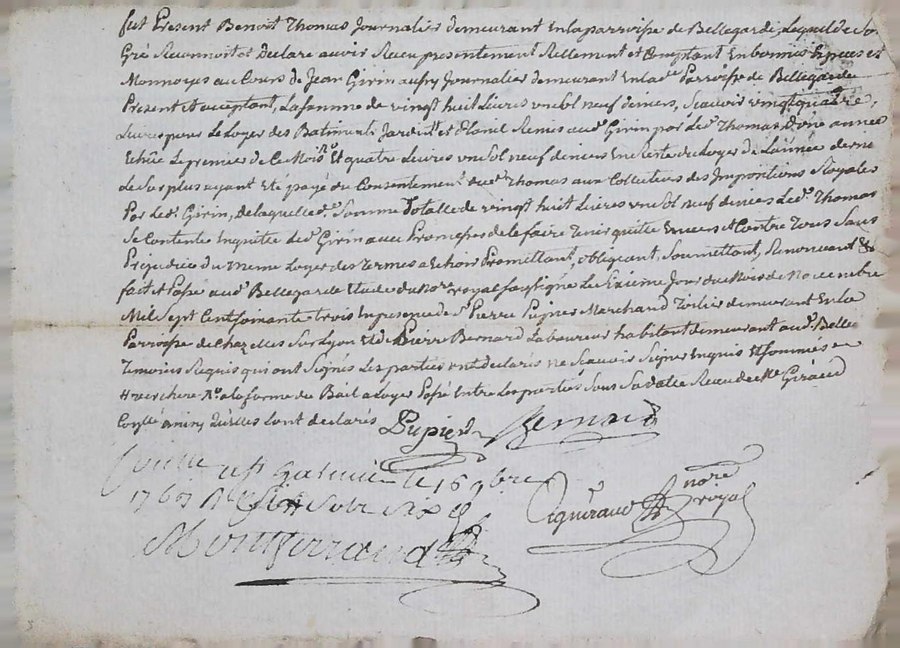 fut Present Benoit Thomas Journalier demeurant en la parroisse de Bellegarde, Lequel de son
Gré Reconnoit et Declare avoir Receu presentement Reellement et Comptant En bonnes Especes et
Monnoyes au Cours de Jean Girin aussy Journalier demeurant En lad. Parroisse de Bellegarde
Present et acceptant, La somme de vingt huit Livres un sol neuf deniers, Scavoir vingt quatre
Livres pour Le Loyer des Batiments Jardin et Remis aud. Girin par Led. Thomas d'une année
Echüe Le premier de Ce Mois, Et quatre Livres un sol neuf deniers En Reste du Loyer de L'année
Le Surplus ayant Eté payé du Consentement dud. Thomas aux Collecteurs des Impositions Royales
Par Led. Girin, de laquelle d. Somme Totalle de vingt huit Livres un sol neuf deniers Led. Thomas
Se Contente En quitte Led. Girin avec Promesses de le faire Tenir quitte Envers et Contre Tous Sans
Prejudice du meme Loyer des termes a Echoir Promettant, obligeant, Soumettant, Renonçant &c
fait et Passé aud. Bellegarde Etude du Not.re royal soussigné Le Jour du Mois de Novembre
Mil Sept Cent soixante trois En presence de S. Pierre Pupier Marchand demeurant En la
Parroisse de Chazelles Sur Lyon Et de Pierre Bernard Laboureur habitant demeurant aud. Belle
Temoins Requis qui ont Signés Les parties ont declaré ne Scavoir Signer Enquis Et Sommés
a la forme du Bail a Loyer Passé Entre Les parties Sous Sa datte Receu de Me Giraud
ainsy qu'elles L'ont declaré
Pupier Bernard
Galmier le 16 9bre
1763 Six
Montferrand
Giraud nore royal